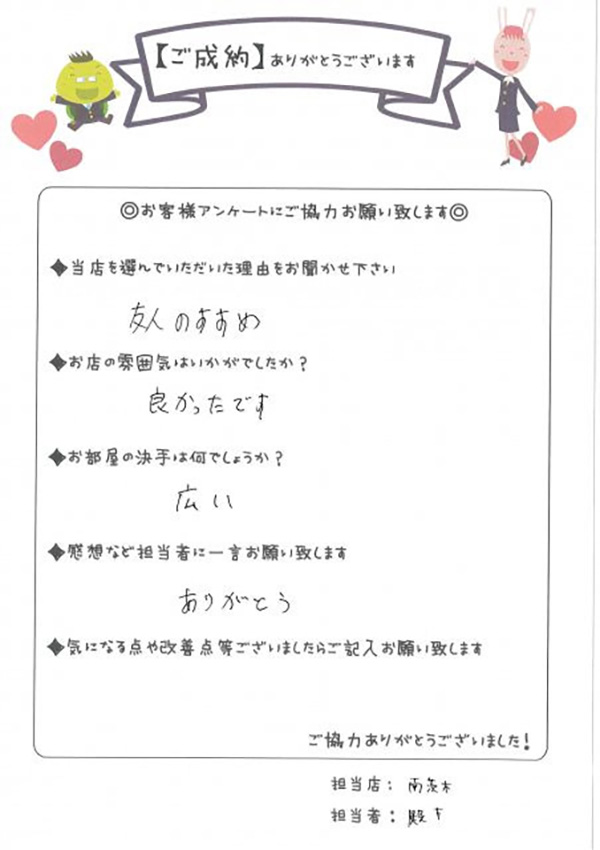 【ご成約】ありがとうございます
◎お客様アンケートにご協力お願い致します◎
◆当店を選んでいただいた理由をお聞かせ下さい
友人のすすめ
◆お店の雰囲気はいかがでしたか？
良かったです
◆お部屋の決手は何でしょうか？
広い
◆感想など担当者に一言お願い致します
ありがとう
◆気になる点や改善点等ございましたらご記入お願い致します
ご協力ありがとうございました！
担当店： 南茨木
担当者：